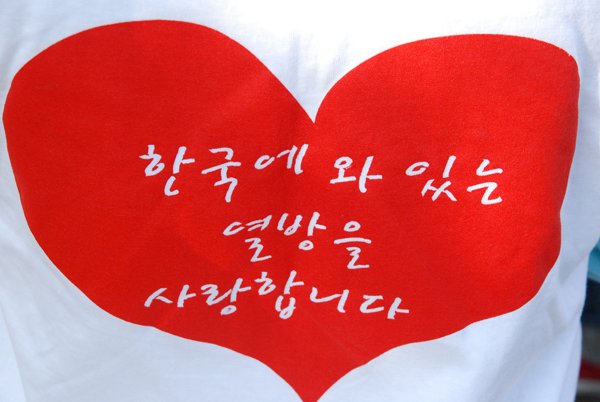 한국에 와 있는
열방을
사랑합니다